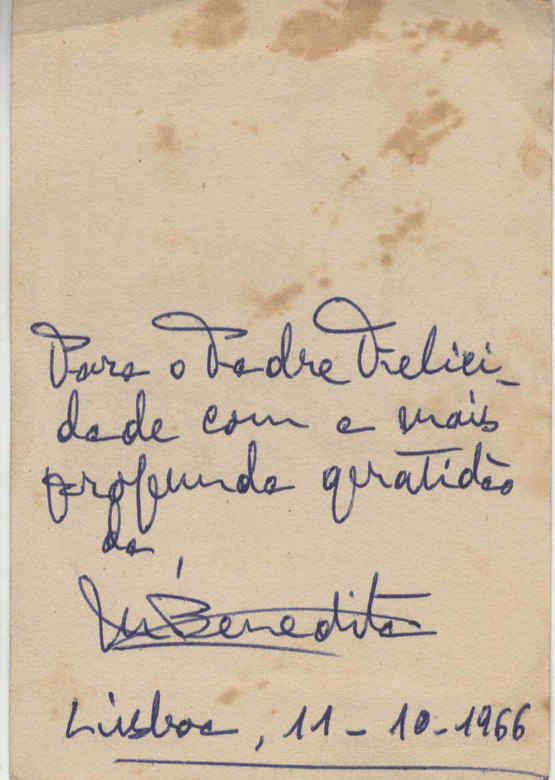 Para o Padre Felici_
dade com a mais
profunda gratidão
da
Mª Benedita
Lisboa, 11 - 10 - 1966